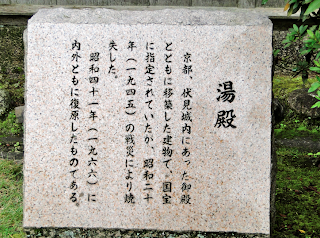 湯殿
京都、伏見城内にあった御殿
とともに移築した建物で、国宝
に指定されていたが、昭和二十
年(一九四五)の戦災により焼
失した。
昭和四十一年(一九六六)に
内外ともに復原したものである。